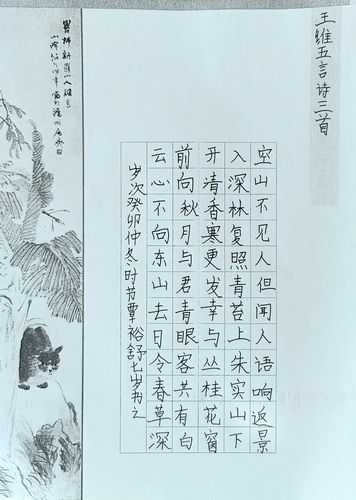 王维五言诗三首
空山不见人但闻人语响返景
入深林复照青苔上朱实山下
开清香寒更发幸与丛桂花窗
前向秋月与君青眼客共有白
云心不向东山去日令春草深
岁次癸卯仲冬时节覃裕舒七岁书之